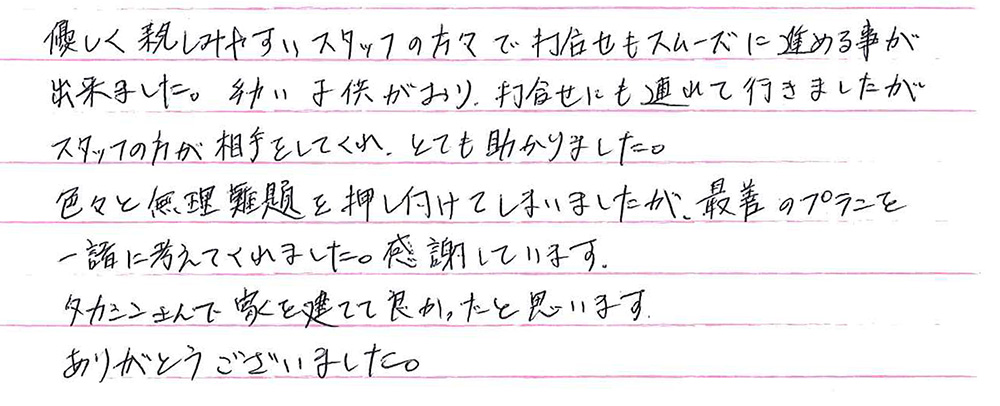 優しく親しみやすいスタッフの方々で打合せもスムーズに進める事が
出来ました。幼い子供がおり、打合せにも連れて行きましたが
スタッフの方が相手をしてくれ、とても助かりました。
色々と無理難題を押し付けてしまいましたが、最善のプランを
一諸に考えてくれました。感謝しています。
タカシンさんで家を建てて良かったと思います。
ありがとうございました。